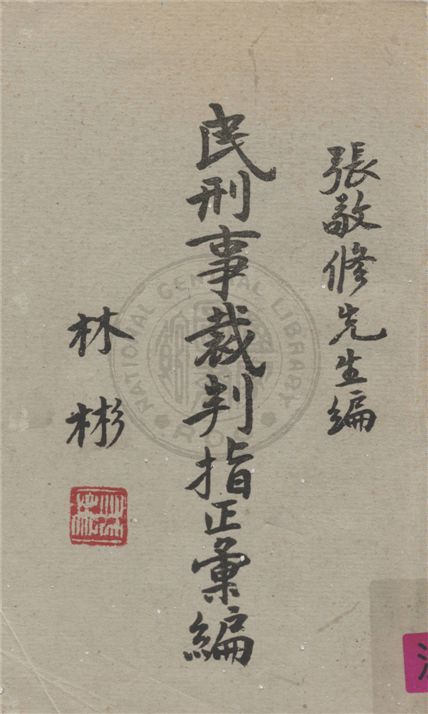 張敬修先生編
民刑事裁判指正彙編
林彬
NATIONAL CENTRAL LIBRARY